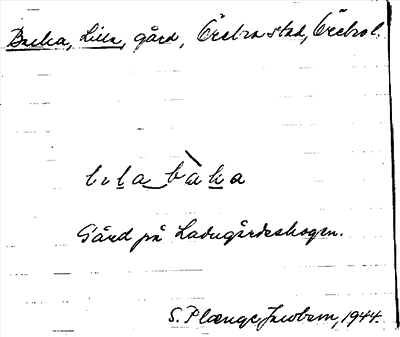 Backa, Lilla, gård, Örebro stad, Örebro l.
lıla baka
Gård på Ladugårdsskogen.
S. Plænge Jacobson, 1944.